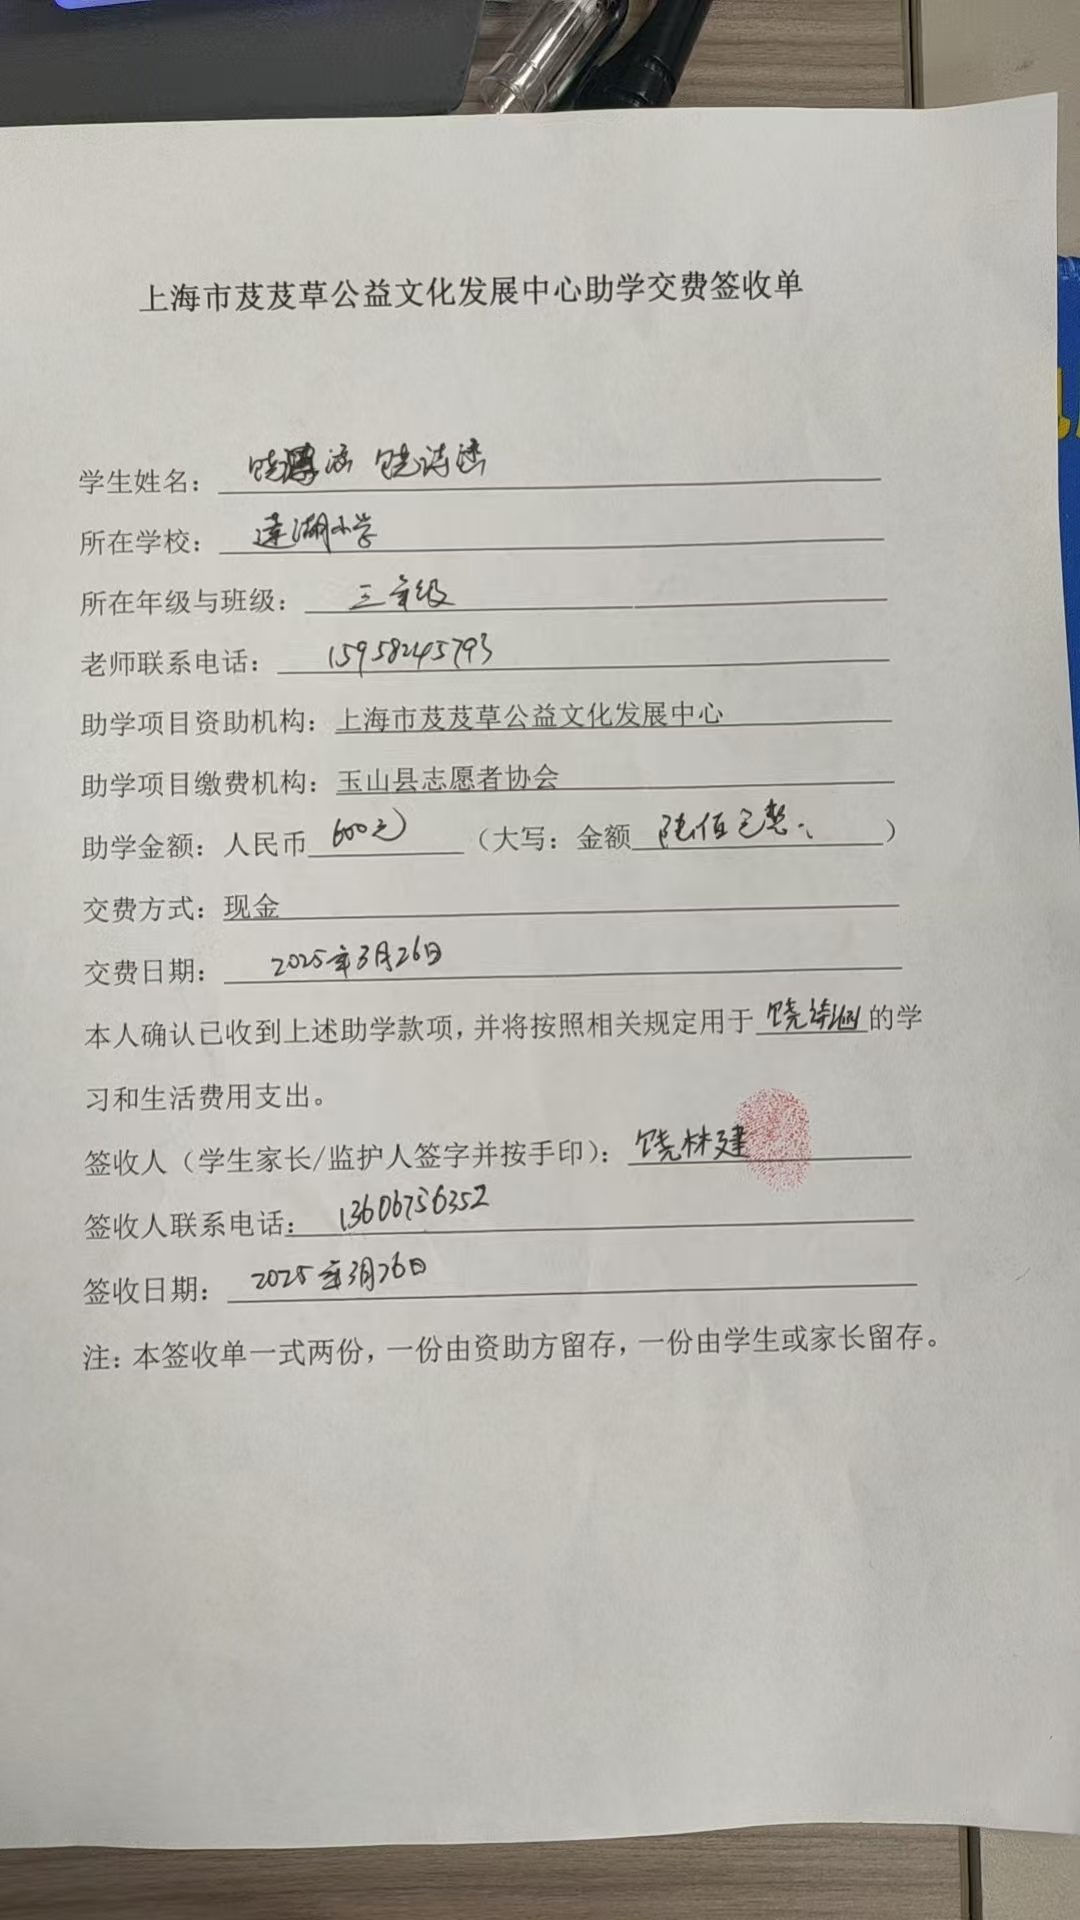 上海市芨芨草公益文化发展中心助学交费签收单
学生姓名： 饶 涵 饶诗涵
所在学校： 莲湖小学
所在年级与班级： 三年级
老师联系电话： 15958245793
助学项目资助机构：上海市芨芨草公益文化发展中心
助学项目缴费机构：玉山县志愿者协会
助学金额：人民币 600元 （大写：金额 陆佰元整 ）
交费方式：现金
交费日期： 2025年3月26日
本人确认已收到上述助学款项，并将按照相关规定用于 饶诗涵 的学
习和生活费用支出。
签收人（学生家长/监护人签字并按手印）： 饶林建
签收人联系电话： 13606756352
签收日期： 2025年3月26日
注：本签收单一式两份，一份由资助方留存，一份由学生或家长留存。